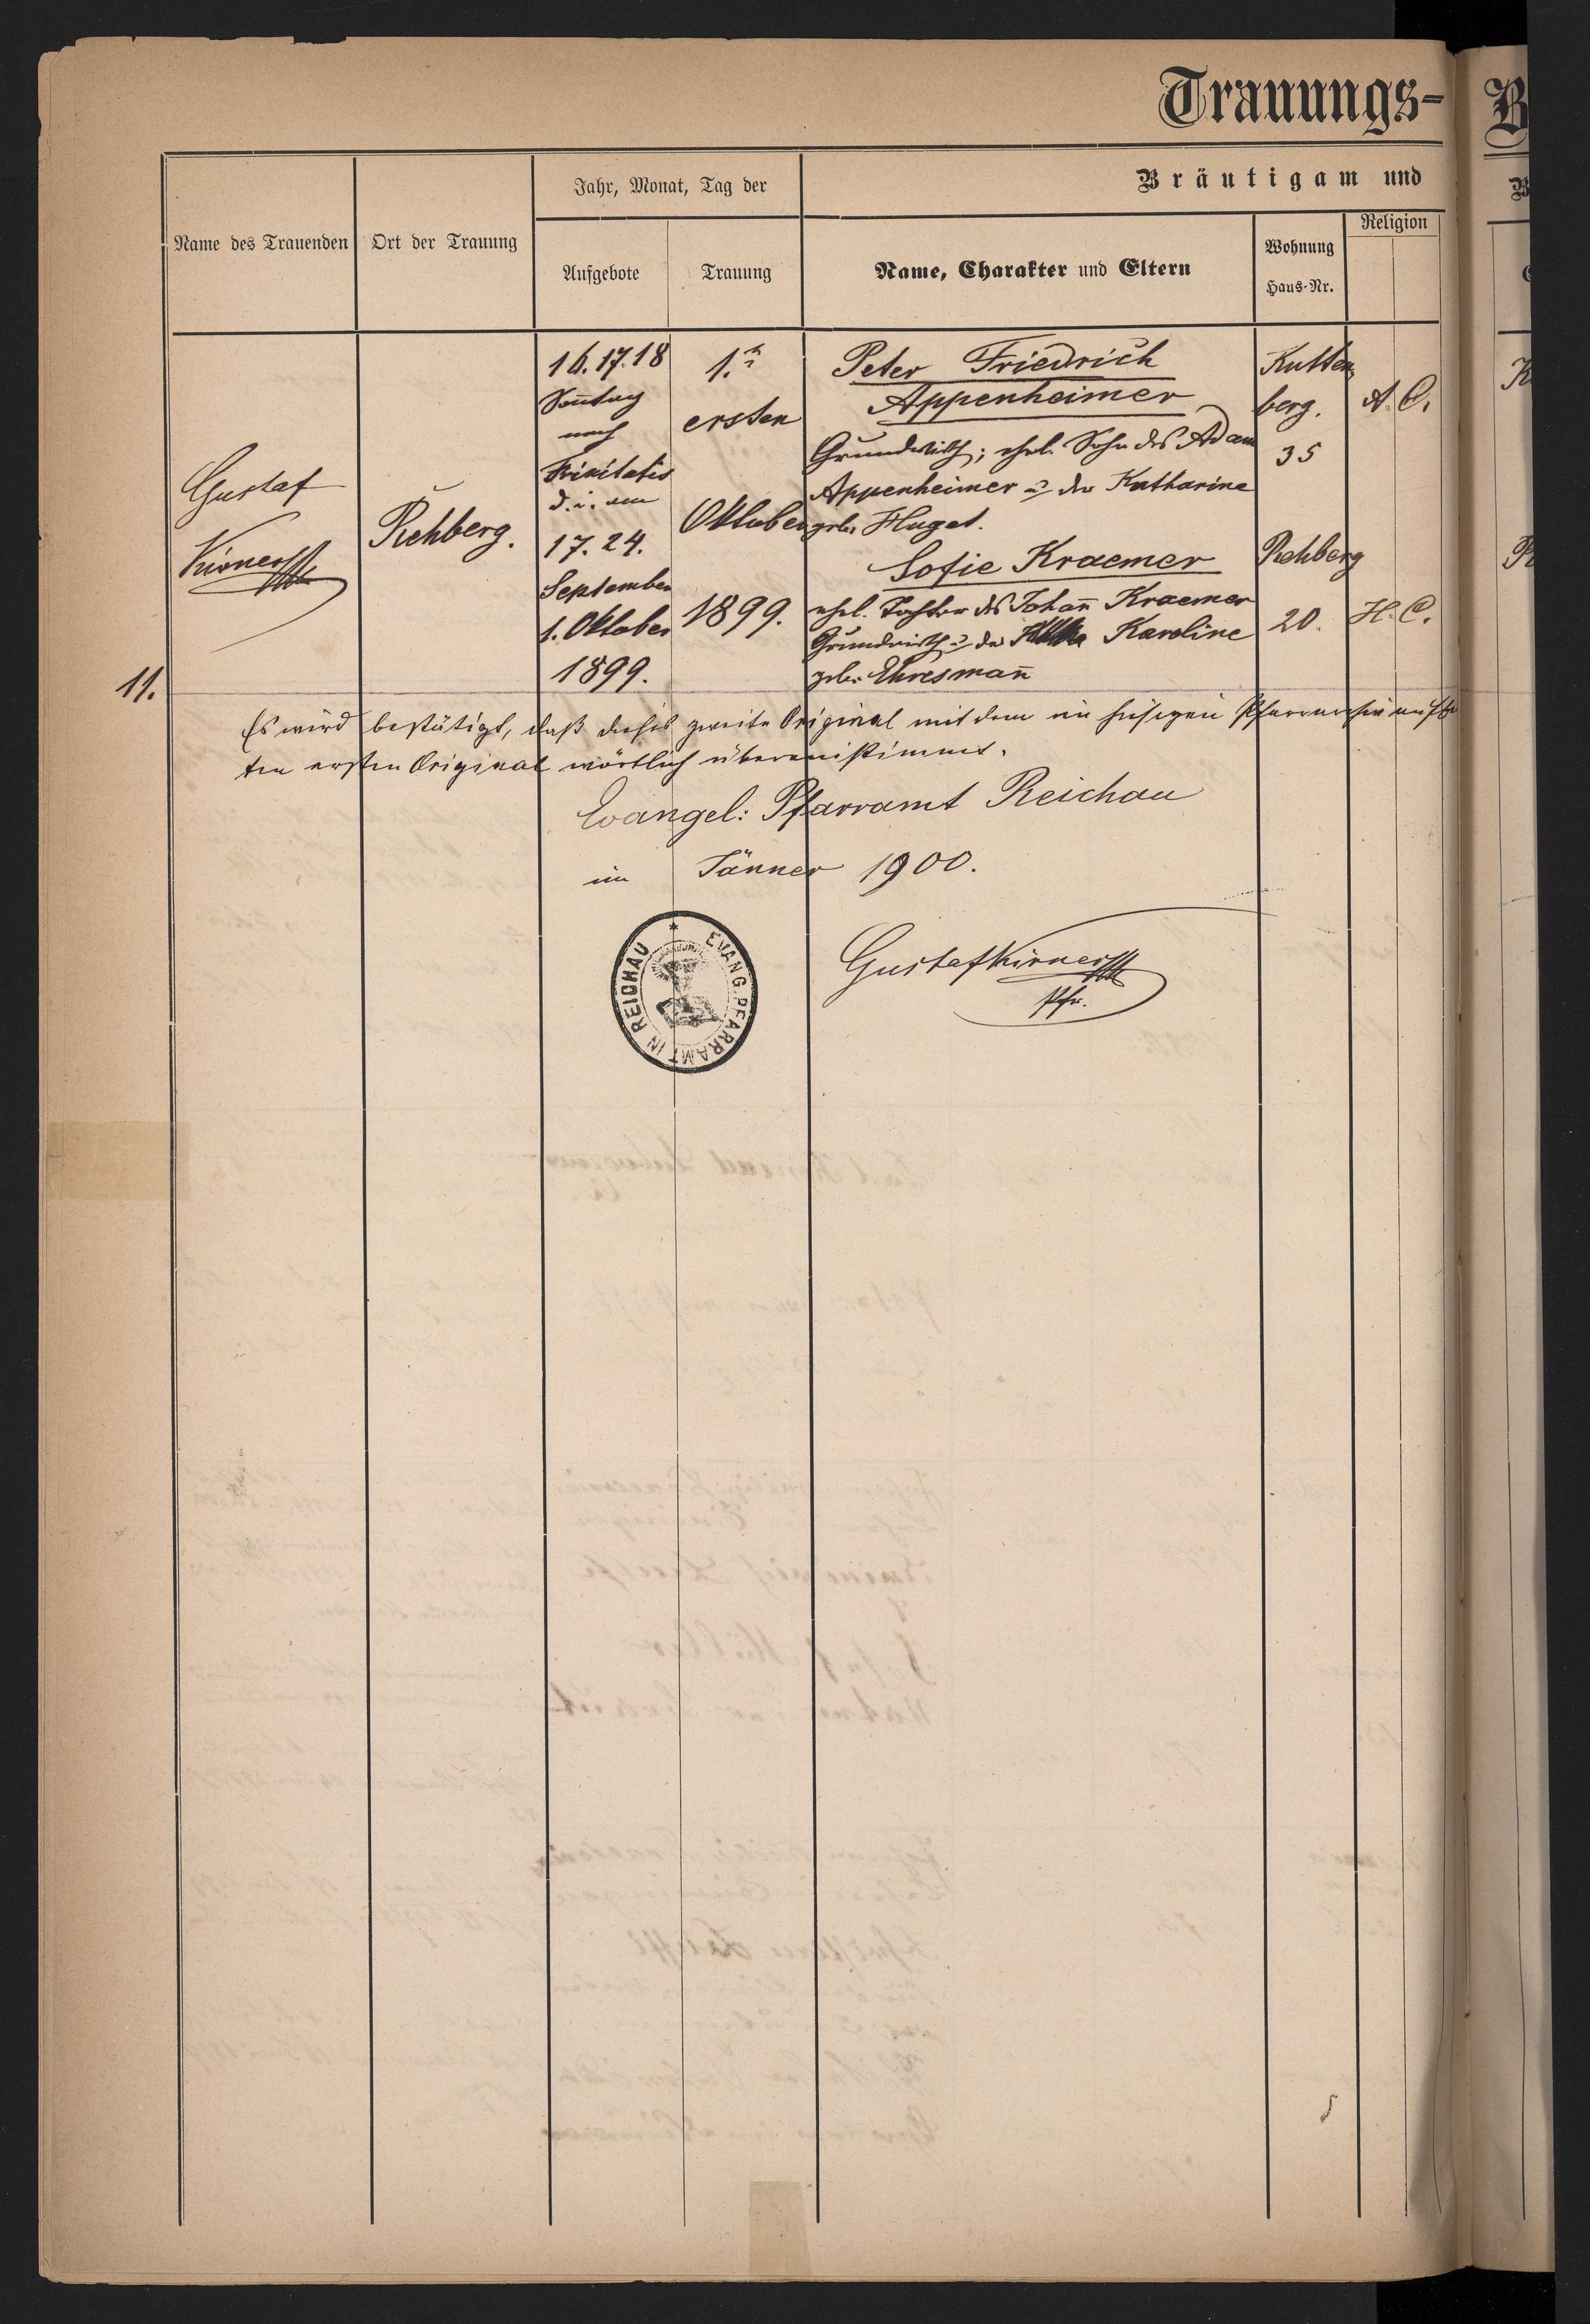 Trauungs-
Jahr, Monat, Tag der
Bräutigam und
Name des Trauenden
Ort der Trauung
Aufgebote
Trauung
Name, Charakter und Eltern
Wohnung
Haus-Nr.
Religion
11.
Gustaf
Kirner
Rehberg.
16. 17. 18
Soñtag
nach
Trinitatis
d. i. am
17. 24.
September
1. Oktober
1899.
1.
ersten
Oktober
1899.
Peter Friedrich
Appenheimer
Grundwirth; ehel. Sohn des Adam
Appenheimer u. der Katharine
geb. Huget.
Sofie Kraemer
ehel. Tochter des Johañ Kraemer
Grundwirth u. der Karoline
geb. Ehresmañ
Kutten
berg.
35
A. C.
Rehberg
20.
H. C.
Es wird bestätigt, daß dieses zweite Original mit dem im hiesigen
ten ersten Original wörtlich übereinstimmt.
Evangel: Pfarramt Reichau
im Jänner 1900.
EVANG. PFARRAMT IN REICHAU
Gustaf Kirner
Pfr.